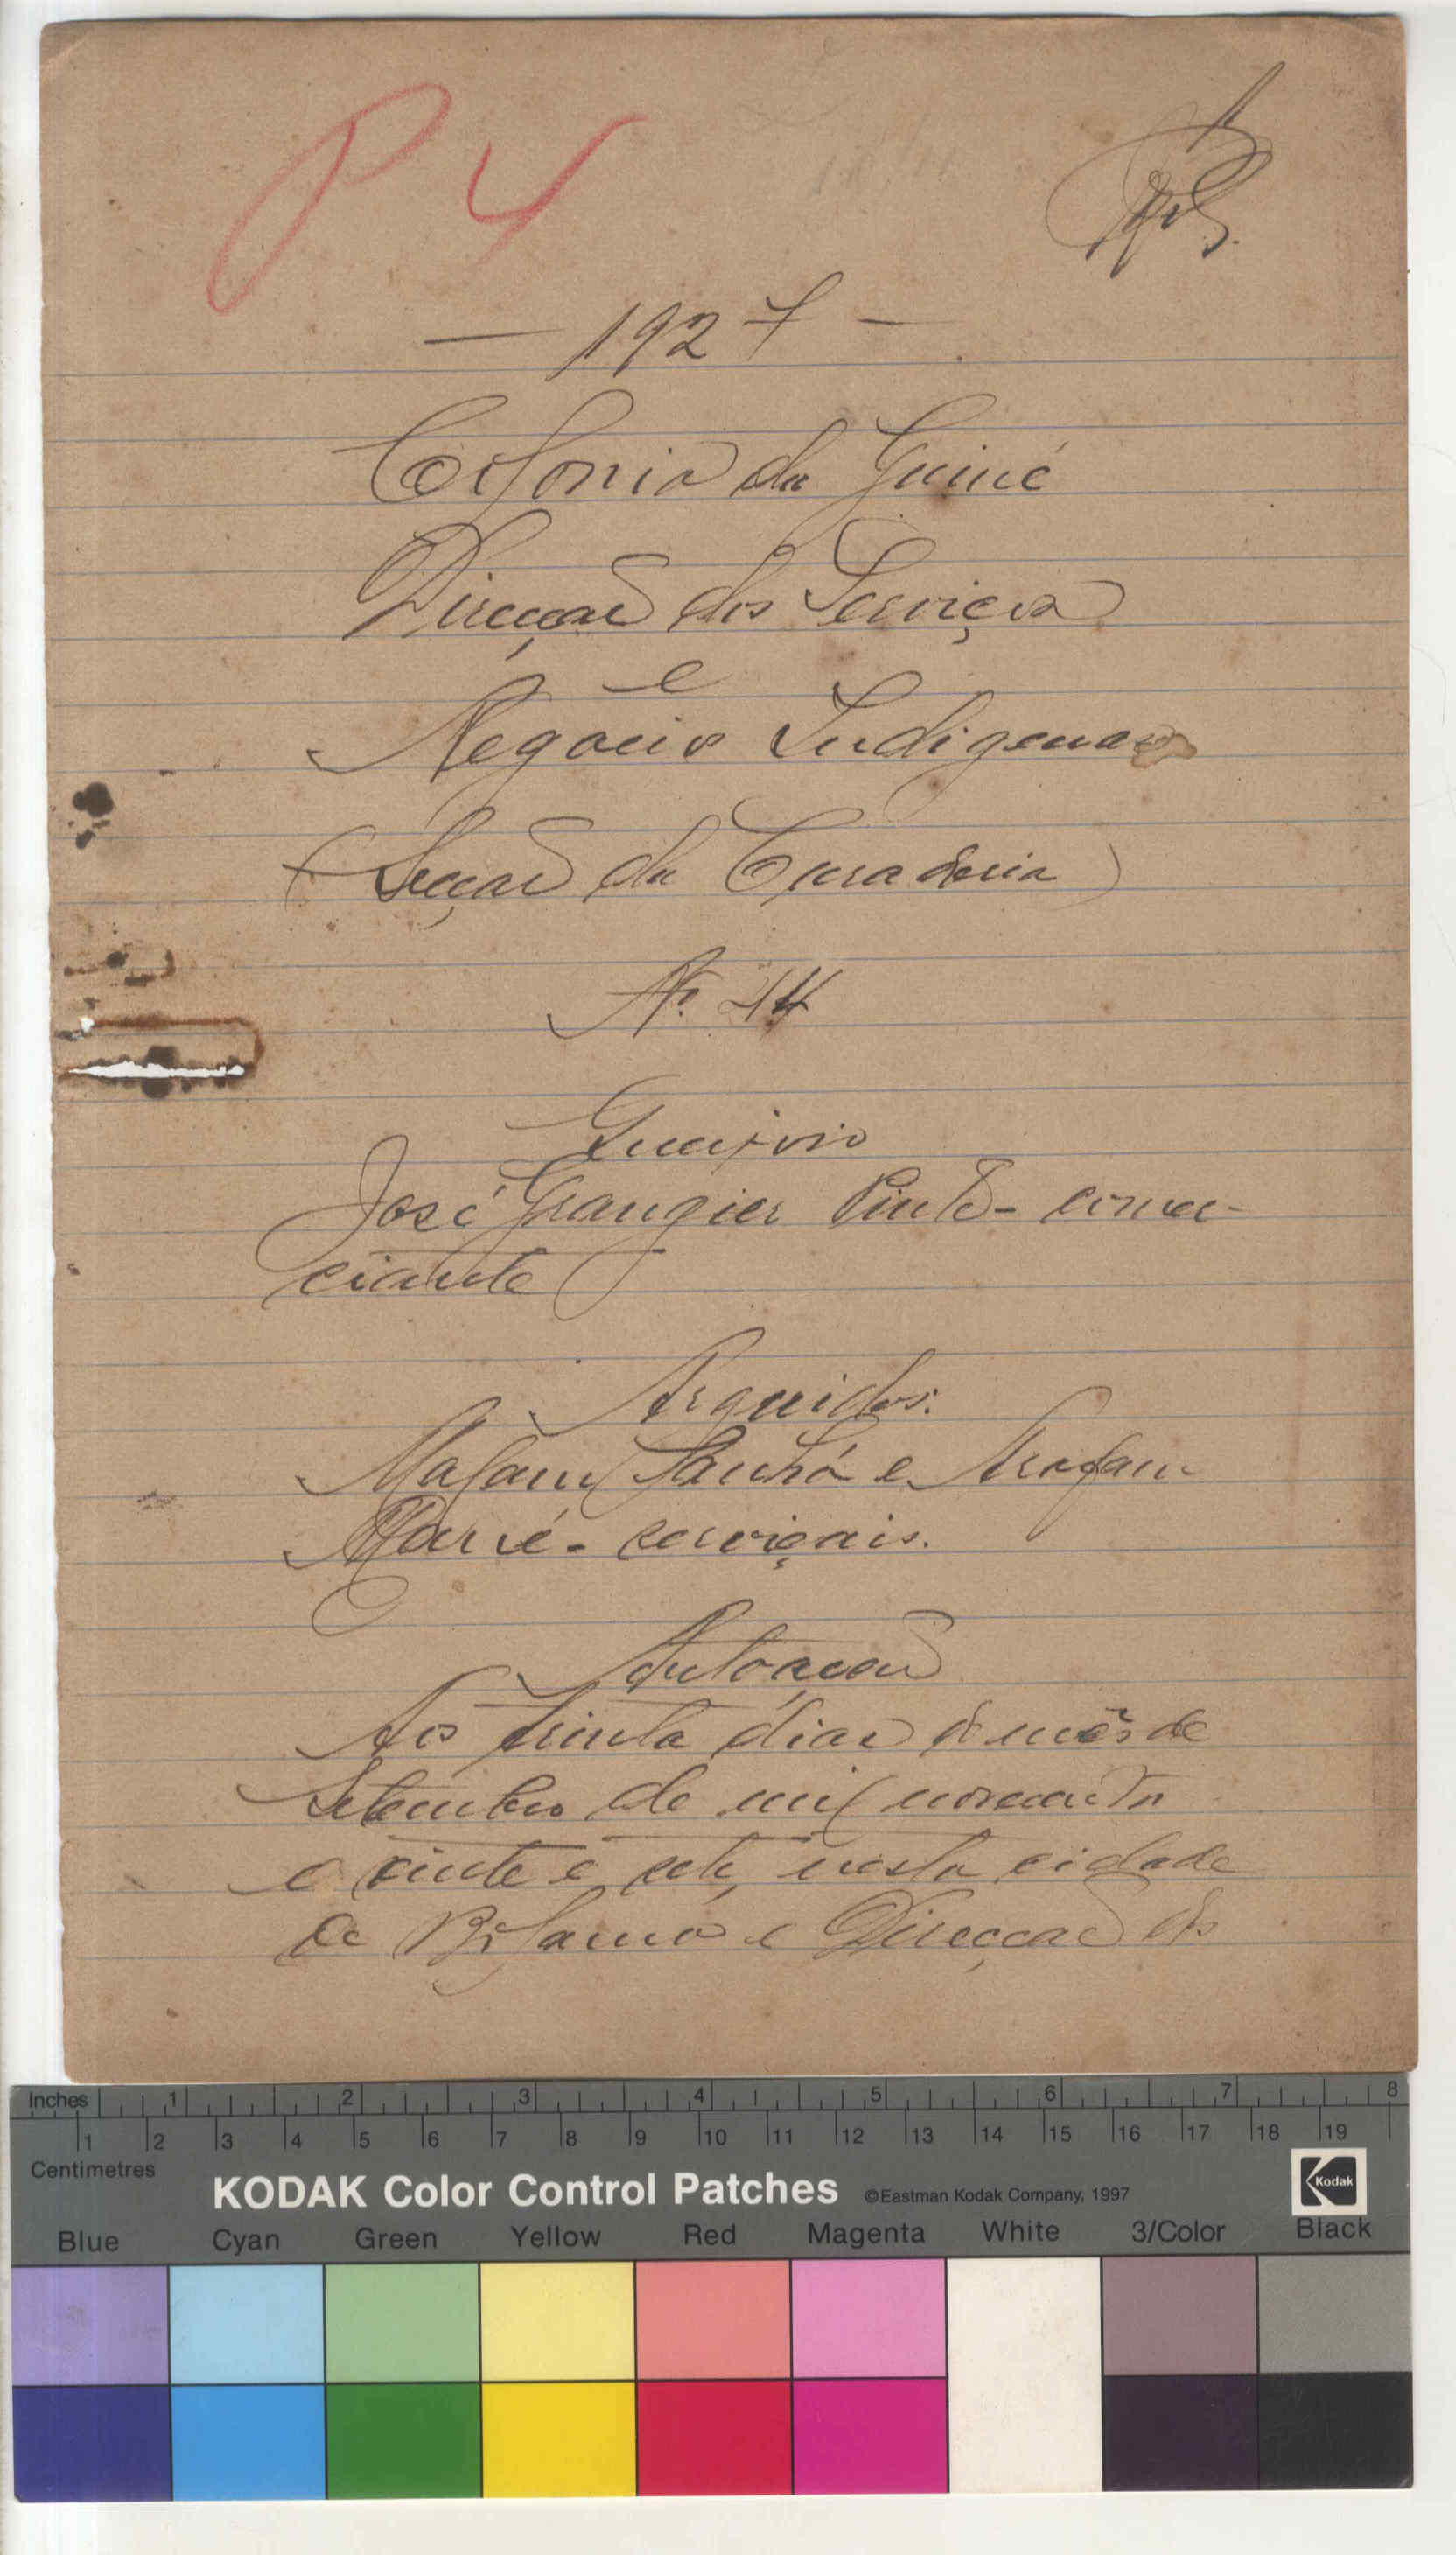 P 4
— 1927 —
Colonia da Guiné
Direcção dos Serviços
e
Negocios Indigenas
(Secção da Curadoria)
Nº 44
Queixoso
José Grangier Pinto - comer-
ciante
Arguidos:
Malam Sanhá e Arafam
Mané - serviçais.
Autoação
Aos trinta dias do mês de
Setembro de mil novecentos
e vinte e sete, nesta cidade
de Bolama e Direcção dos
Inches 1 2 3 4 5 6 7 8
1 2 3 4 5 6 7 8 9 10 11 12 13 14 15 16 17 18 19
Centimetres
KODAK Color Control Patches ©Eastman Kodak Company, 1997 Kodak
Blue Cyan Green Yellow Red Magenta White 3/Color Black